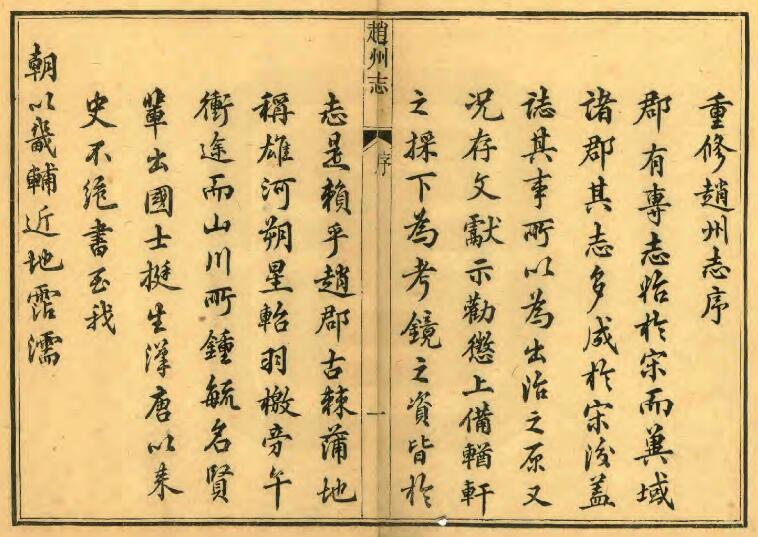 重修趙州志序
郡有專志始於宋而冀域
諸郡其志多成於宋後蓋
誌其事所以為出治之原又
況存文獻示勸懲上備輶軒
之採下為考鏡之資皆於
趙州志
序
一
志是賴乎趙郡古棘蒲地
稱雄河朔星軺羽檄旁午
衝途而山川所鍾毓名賢
輩出國士挺生漢唐以來
史不絶書至我
朝以畿輔近地霑濡